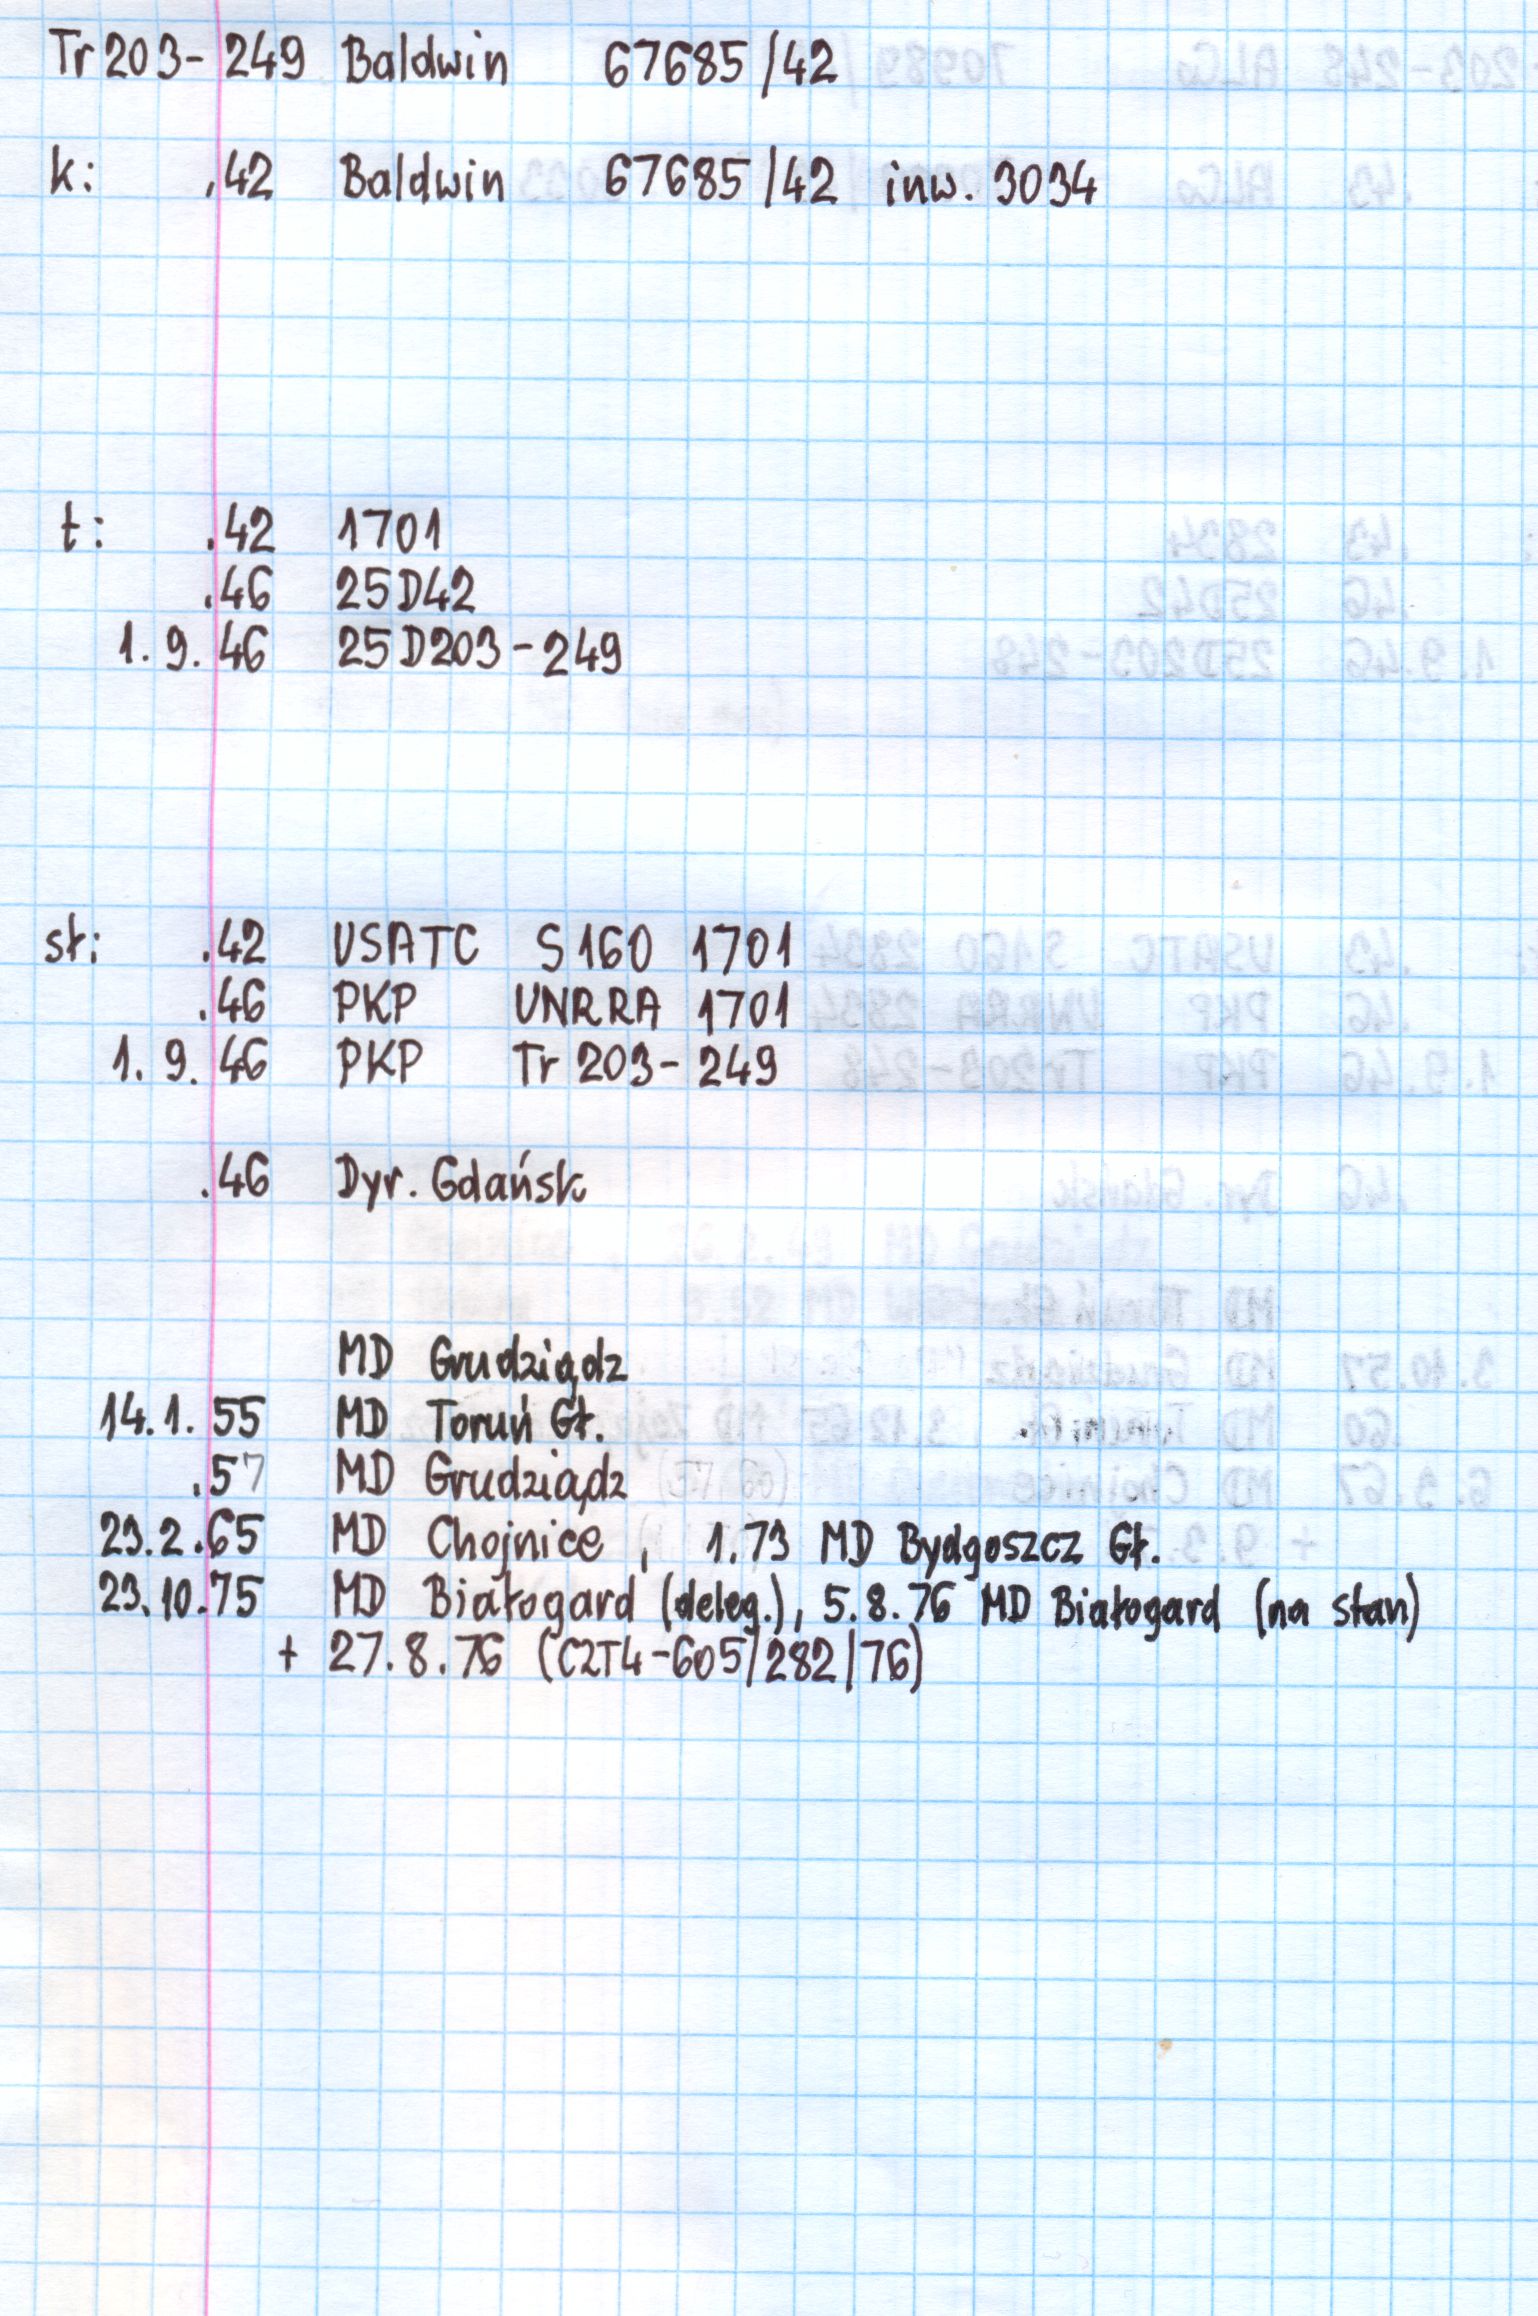 Tr203-249 Baldwin 67685/42
k: .42 Baldwin 67685/42 inw. 3034
t: .42 1701
.46 25D42
1.9.46 25D203-249
st: .42 USATC S160 1701
.46 PKP UNRRA 1701
1.9.46 PKP Tr203-249
.46 Dyr. Gdańsk
MD Grudziądz
14.1.55 MD Toruń Gł.
.57 MD Grudziądz
23.2.65 MD Chojnice, 1.73 MD Bydgoszcz Gł.
23.10.75 MD Białogard (deleg.), 5.8.76 MD Białogard (na stan)
+ 27.8.76 (C2T4-605/282/76)